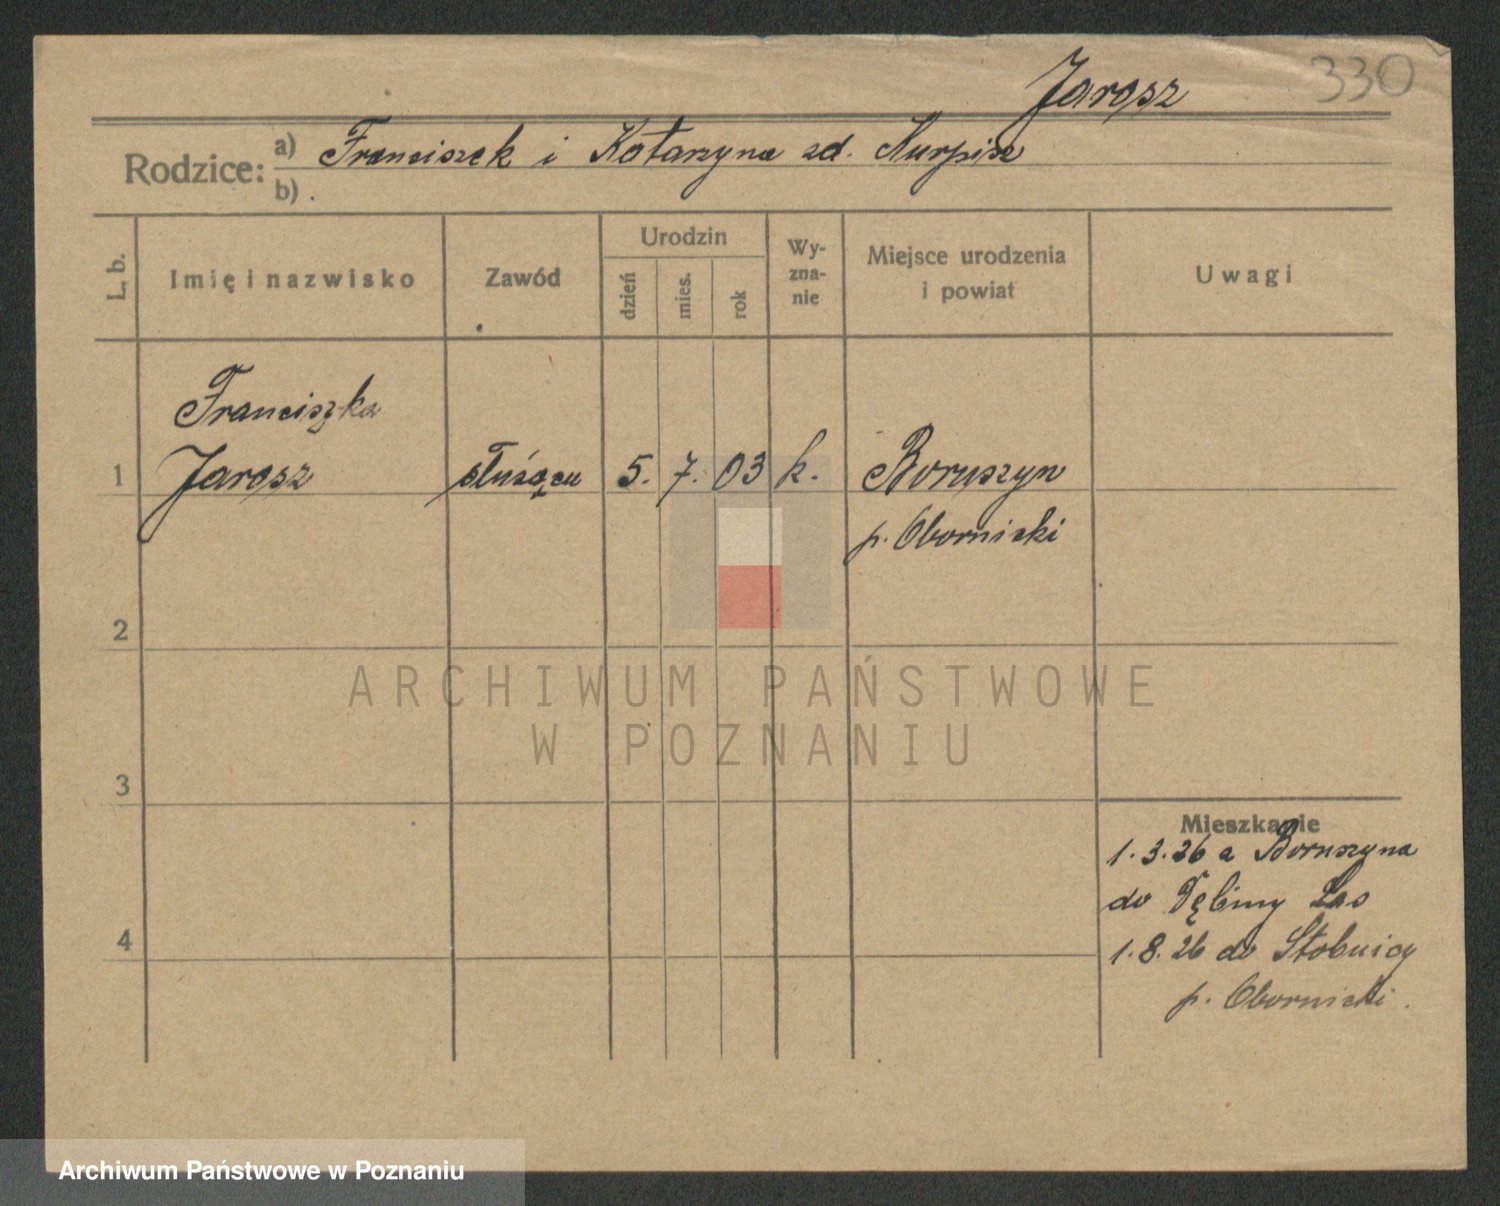 Jarosz 330
Rodzice: a) Franciszek i Katarzyna zd. Nurpisz
b) .
L. b. Imię i nazwisko Zawód Urodzin dzień mies. rok Wy-zna-nie Miejsce urodzenia i powiat Uwagi
Franciszka
1 Jarosz służąca 5. 7. 03 k. Boruszyn
p. Obornicki
2
3
4
Mieszkanie
1.3.26 z Boruszyna
do Dębiny Las
1.8.26 do Stobnicy
p. Obornicki.
ARCHIWUM PAŃSTWOWE
W POZNANIU
Archiwum Państwowe w Poznaniu